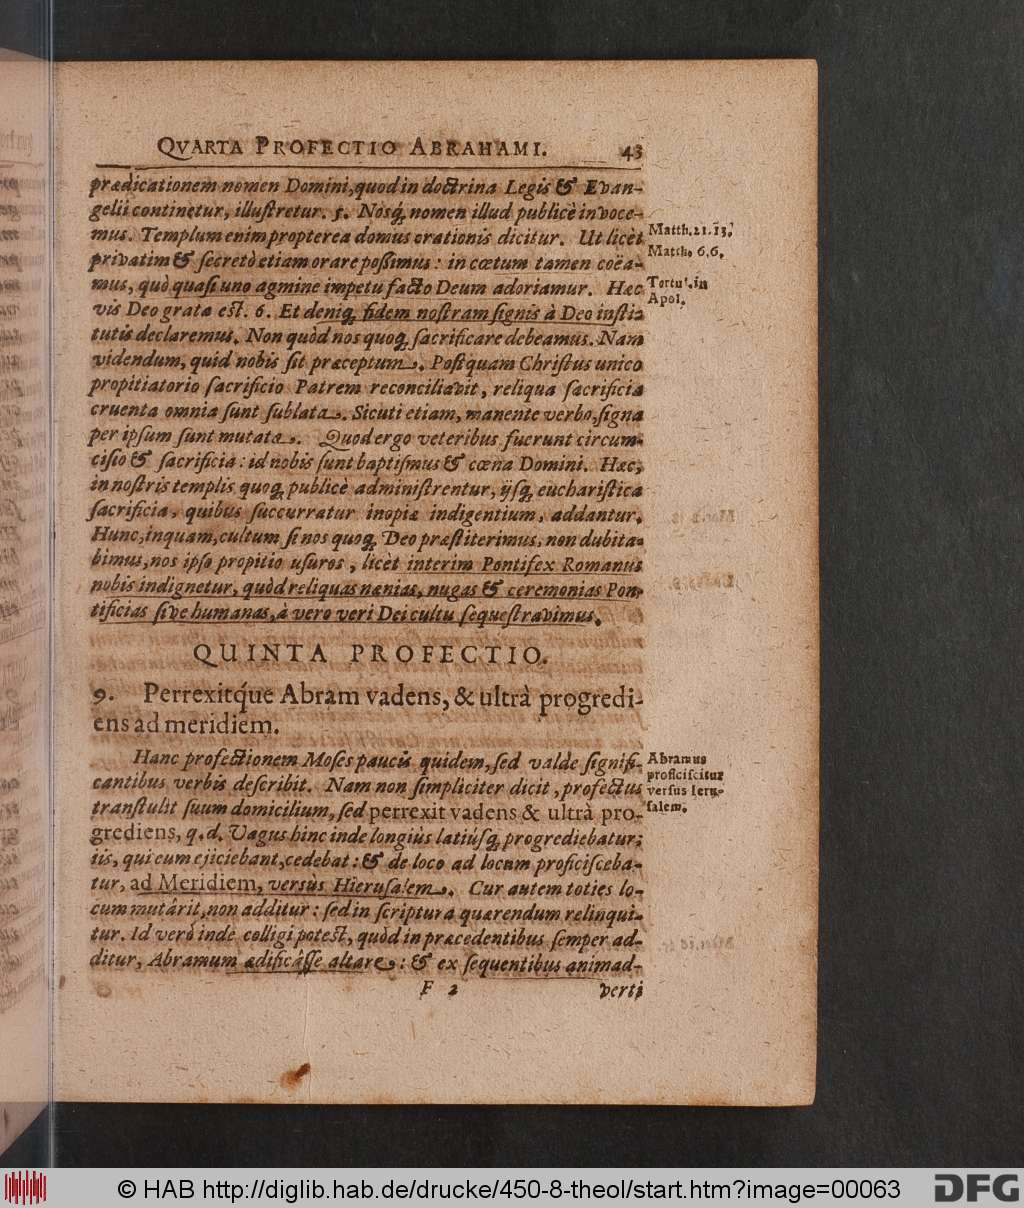 QVARTA PROFECTIO ABRAHAMI. 43
prædicationem nomen Domini, quod in doctrina Legis & Evan-
gelii continetur, illustretur. 5. Nosq; nomen illud publicè invoce-
mus. Templum enim propterea domus orationis dicitur. Ut licèt
Matth. 21. 13.
privatim & secretò etiam orare possimus: in cœtum tamen coëa-
Matth. 6, 6.
mus, quò quasi uno agmine impetu facto Deum adoriamur. Hæc
Tertul. in
Apol.
vis Deo grata est. 6. Et deniq; fidem nostram signis à Deo insti-
tutis declaremus. Non quòd nos quoq; sacrificare debeamus. Nam
videndum, quid nobis sit præceptum. Postquam Christus unico
propitiatorio sacrificio Patrem reconciliavit, reliqua sacrificia
cruenta omnia sunt sublata. Sicuti etiam, manente verbo, signa
per ipsum sunt mutata. Quod ergo veteribus fuerunt circum-
cisio & sacrificia: id nobis sunt baptismus & cœna Domini. Hæc,
in nostris templis quoq; publicè administrentur, ijsq; eucharistica
sacrificia, quibus succurratur inopia indigentium, addantur.
Hunc, inquam, cultum si nos quoq; Deo præstiterimus, non dubita-
bimus, nos ipso propitio usuros, licèt interim Pontifex Romanus
nobis indignetur, quòd reliquas nænias, nugas & ceremonias Pon-
tificias sive humanas, à vero veri Dei cultu sequestravimus.
QUINTA PROFECTIO.
9. Perrexitq́ue Abram vadens, & ultrà progredi-
ens ad meridiem.
Hanc profectionem Moses paucis quidem, sed valde signifi-
Abramus
cantibus verbis describit. Nam non simpliciter dicit, profectus
proficiscitur
versus Ieru-
transtulit suum domicilium, sed perrexit vadens & ultrà pro-
salem.
grediens, q. d. Vagus hinc inde longiùs latiúsq; progrediebatur;
iis, qui eum ejiciebant, cedebat: & de loco ad locum proficisceba-
tur, ad Meridiem, versùs Hierusalem. Cur autem toties lo-
cum mutârit, non additur: sed in scriptura quærendum relinqui-
tur. Id verò inde colligi potest, quòd in præcedentibus semper ad-
ditur, Abramum ædificâsse altare: & ex sequentibus animad-
F 2 verti
© HAB http://diglib.hab.de/drucke/450-8-theol/start.htm?image=00063
DFG